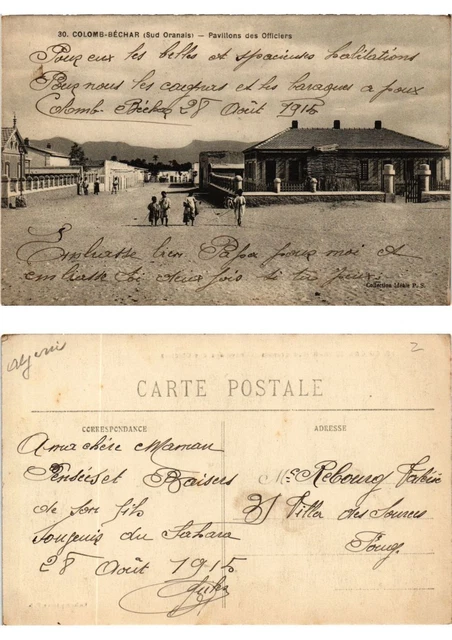 30. COLOMB-BÉCHAR (Sud Oranais) — Pavillons des Officiers
Pour eux les belles et spacieuses habitations
Pour nous les cagnas et les baraques a poux
Colomb-Béchar 28 Août 1915
Embrasse bien Papa pour moi et
embrasse toi deux fois si tu peux.
Collection Idéale P. S.
Algérie
2
CARTE POSTALE
CORRESPONDANCE
A ma chère Maman
Pensées et Baisers
de son fils
Souvenir du Sahara
28 Août 1915
ADRESSE
Me Rebourg
31 Villa des Sources